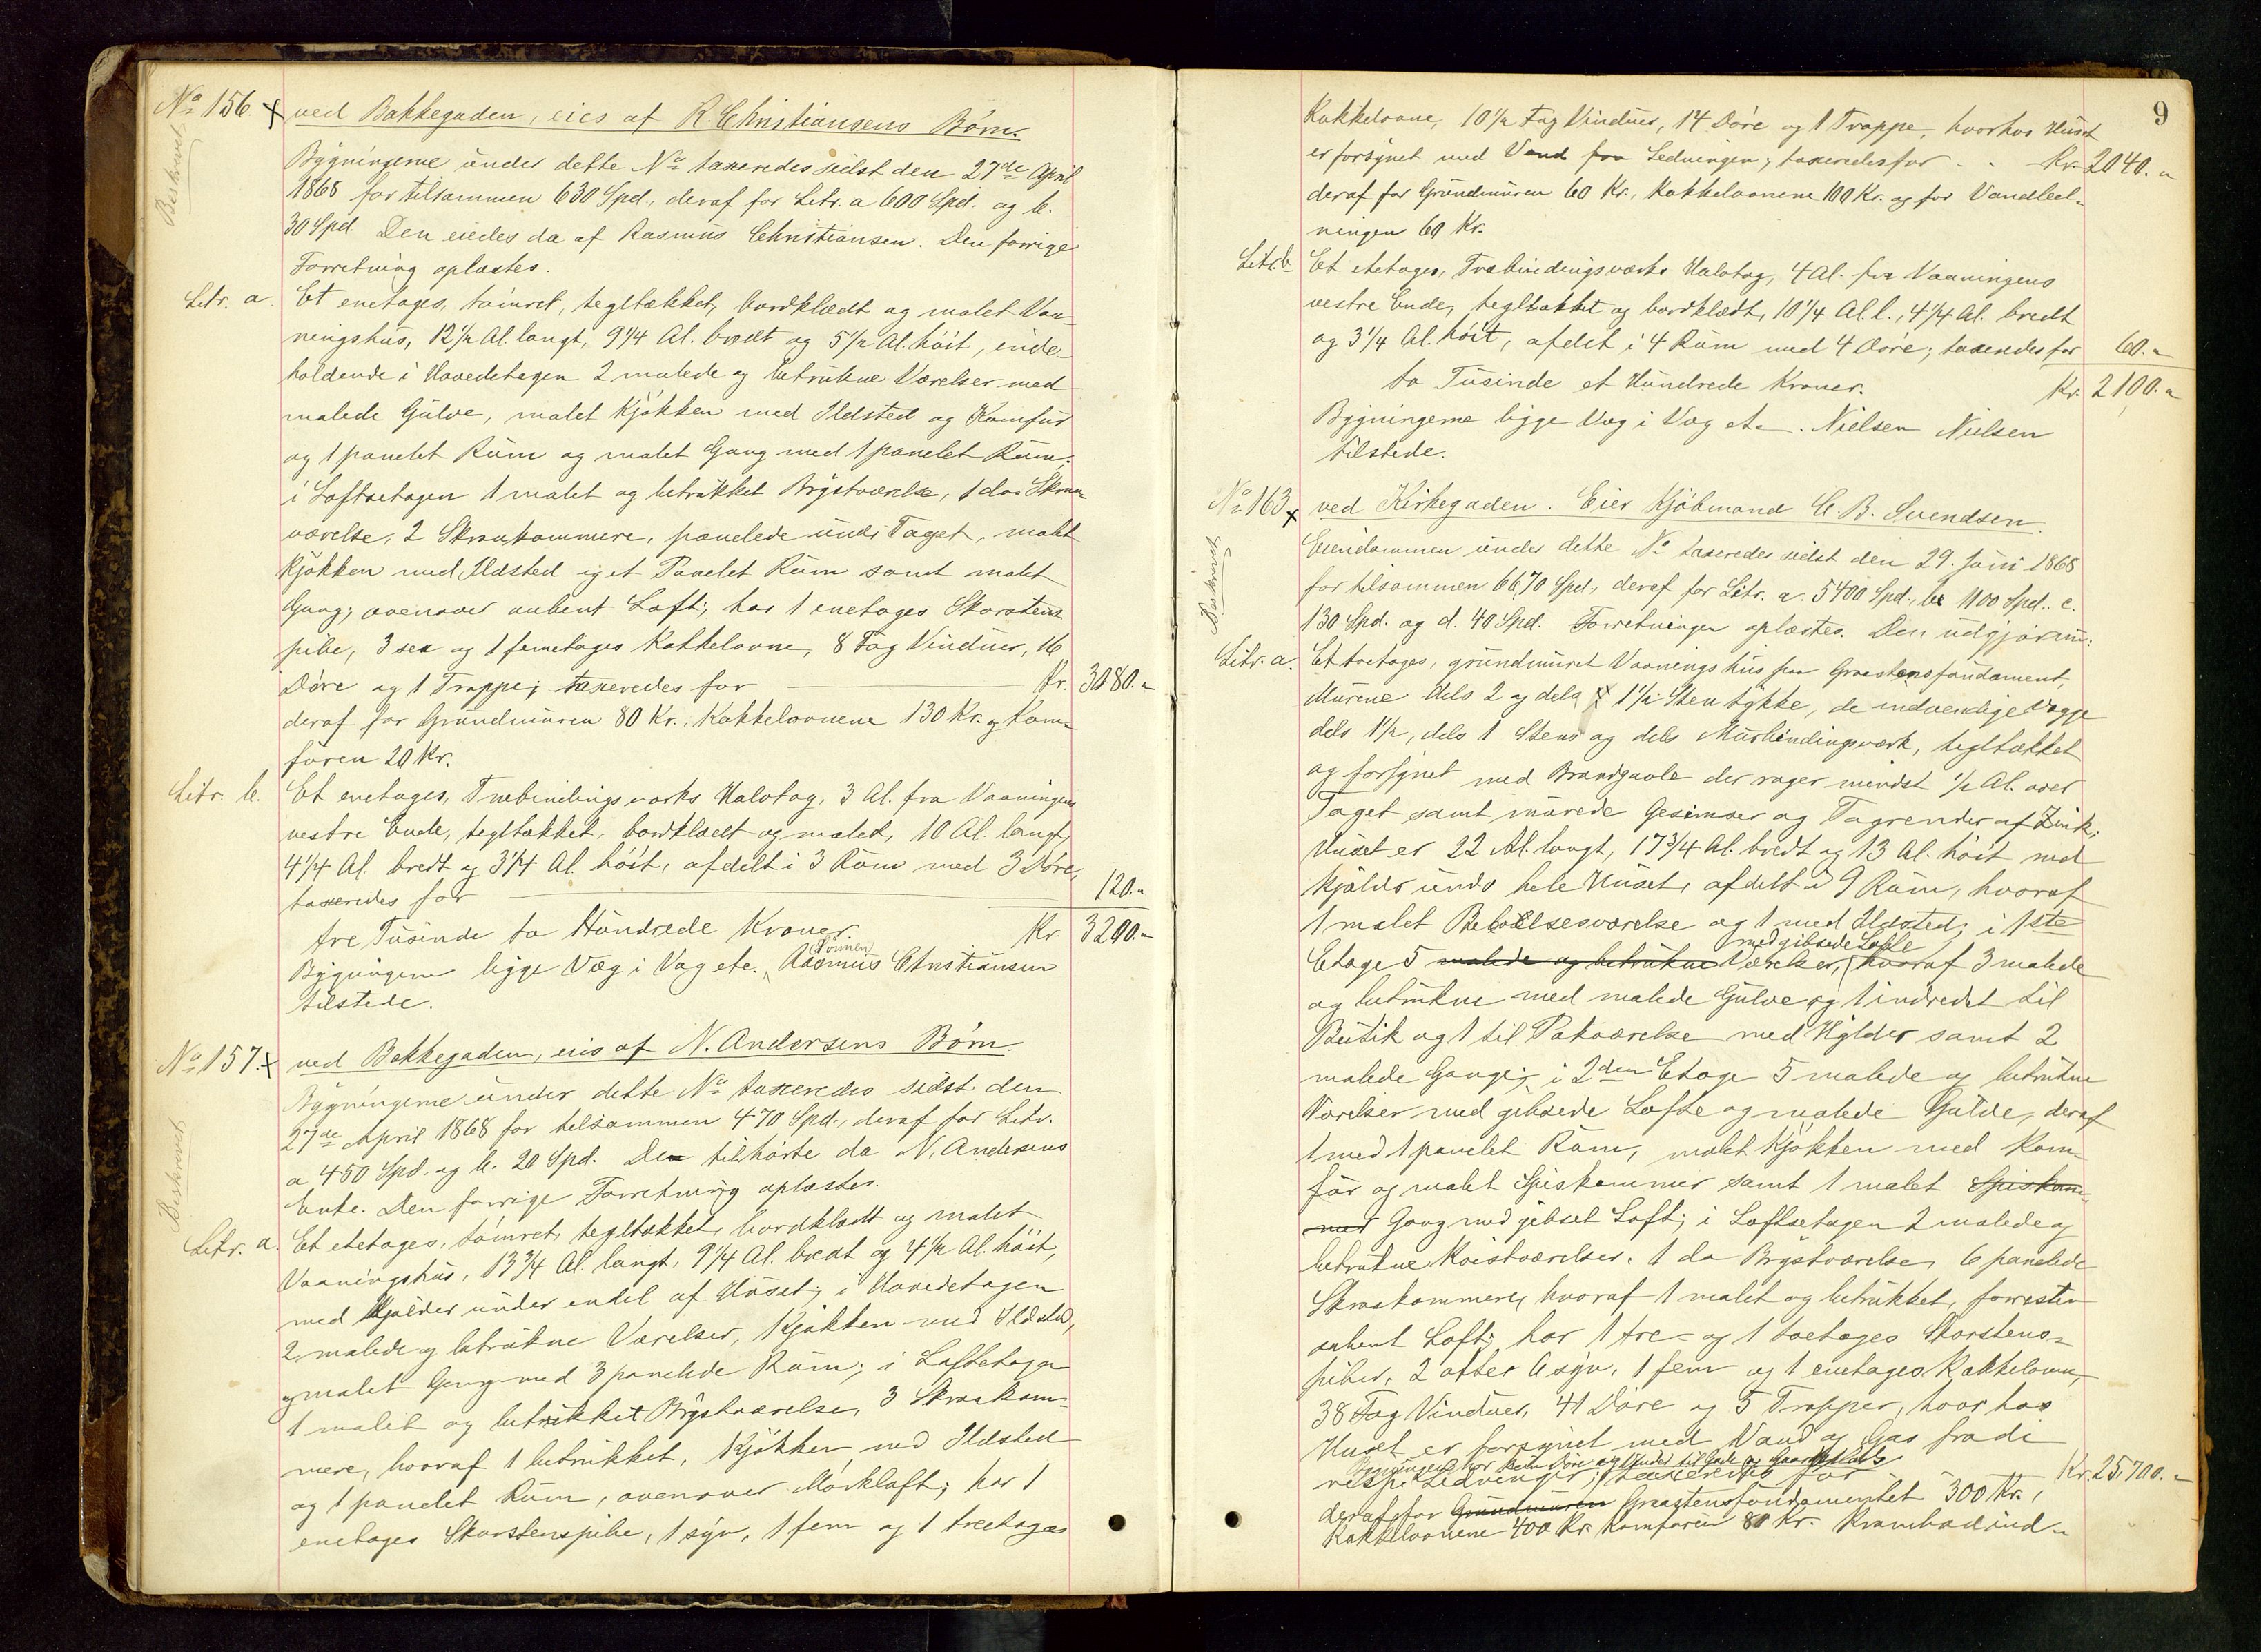 No 156. x ved Bakkegaden, eies af R. Christiansens Børn.
Beskrevet
Bygningerne under dette No taxeredes sidst den 27de April
1868 for tilsammen 630 Spd., deraf for Litr. a 600 Spd. og b.
30 Spd. Den eiedes da af Rasmus Christiansen. Den forrige
Forretning oplæstes.
Litr. a. Et enetages, tømret, tegltækket, bordklædt og malet Vaa-
ningshus, 12 1/2 Al. langt, 9 1/4 Al. bredt og 5 1/2 Al. høit, inde-
holdende i Hovedetagen 2 malede og betrukne Værelser med
malede Gulve, malet Kjøkken med Ildsted og Komfur
og 1 panelet Rum og malet Gang med 1 panelet Rum;
i Loftsetagen 1 malet og betrukket Brystværelse, 1 do Skraa-
værelse, 2 Skraakammere, panelede under Taget, malet
Kjøkken med Ildsted og et Panelet Rum samt malet
Gang; ovenover aabent Loft; har 1 enetages Skorstens-
pibe, 3 sex og 1 femetages Kakkelovne, 8 Fag Vinduer, 16
Døre og 1 Trappe; taxeredes for Kr. 3080.-
deraf for Grundmuren 80 Kr. Kakkelovnene 130 Kr. og Kom-
furen 20 Kr.
Litr. b. Et enetages, Træbindingsværks Halvtag, 3 Al. fra Vaaningens
vestre Ende, tegltækket, bordklædt og malet, 10 Al. langt,
4 1/4 Al. bredt og 3 1/4 Al. høit, afdelt i 3 Rum med 3 Døre,
taxeredes for 120.-
tre Tusinde to Hundrede Kroner. Kr. 3200.-
Sønnen
Bygningerne ligge Væg i Væg etc. Rasmus Christiansen
tilstede.
No 157. x ved Bakkegaden, eies af N. Andersens Børn.
Beskrevet
Bygningerne under dette No taxeredes sidst den
27de April 1868 for tilsammen 470 Spd., deraf for Litr.
a 450 Spd. og b. 20 Spd. Den tilhørte da N. Andersens
Enke. Den forrige Forretning oplæstes.
Litr. a. Et etetages, tømret, tegltækket, bordklædt og malet
Vaaningshus, 13 3/4 Al. langt, 9 1/4 Al. bredt og 4 1/2 Al. høit,
med Kjælder under endel af Huset; i Hovedetagen
2 malede og betrukne Værelser, 1 Kjøkken med Ildsted,
og malet Gang med 3 panelede Rum; i Loftetagen
1 malet og betrukket Brystværelse, 3 Skraakam-
mere, hvoraf 1 betrukket, 1 Kjøkken med Ildsted
og 1 panelet Rum, ovenover Mørkloft; har 1
enetages Skorstenspibe, 1 syv, 1 fem og 1 treetages
9
Kakkelovne, 10 1/2 Fag Vinduer, 14 Døre og 1 Trappe, hvorhos Huset
er forsynet med Vand fra Ledningen; taxeredes for Kr. 2040.-
deraf for Grundmuren 60 Kr., Kakkelovnene 100 Kr. og for Vandled-
ningen 60 Kr.
Litr. b Et etetages, Træbindingsværks Halvtag, 4 Al. fra Vaaningens
vestre Ende, tegltækket og bordklædt, 10 1/4 Al. l., 4 1/4 Al. bredt
og 3 1/4 Al. høit, afdelt i 4 Rum med 4 Døre; taxeredes for 60.-
to Tusinde et Hundrede Kroner. Kr. 2100.-
Bygningerne ligge Væg i Væg etc. Nielsen Nielsen
tilstede.
No 163 x ved Kirkegaden. Eier Kjøbmand C. B. Svendsen.
Beskrevet
Eiendommen under dette No taxeredes sidst den 29. Juni 1868
for tilsammen 6670 Spd., deraf for Litr. a. 5400 Spd., b. 1100 Spd. c.
130 Spd. og d. 40 Spd. Forretningen oplæstes. Den udgjør nu:
Litr. a. Et toetages, grundmuret Vaaningshus paa Graastensfundament,
Murene dels 2 og dels 1 1/2 Sten tykke, de indvendige Vægge
dels 1 1/2, dels 1 Stens og dels Murbindingsværk, tegltækket
og forsynet med Brandgavle der rager mindst 1/2 Al. over
Taget samt murede Gesimser og Tagrender af Zink;
Huset er 22 Al. langt, 17 3/4 Al. bredt og 13 Al. høit med
Kjælder under hele Huset, afdelt i 9 Rum, hvoraf
1 malet Beboelsesværelse og 1 med Ildsted; i 1ste
med gibsede Lofte
Etage 5 malede og betrukne Værelser, hvoraf 3 malede
og betrukne med malede Gulve og 1 indredet til
Butik og 1 til Pakværelse med Hylder samt 2
malede Gange; i 2den Etage 5 malede og betrukne
Værelser med gibsede Lofte og malede Gulve, deraf
1 med 1 panelet Rum, malet Kjøkken med Kom-
fur og malet Spiskammer samt 1 malet Spiskam-
mer Gang med gibset Loft; i Loftsetagen 2 malede og
betrukne Kvistværelser, 1 do Brystværelse, 6 panelede
Skraakammere, hvoraf 1 malet og betrukket, forresten
aabent Loft; har 1 tre- og 1 toetages Skorstens-
piber, 2 otte, 6 syv, 1 fem og 1 enetages Kakkelovne,
38 Fag Vinduer, 41 Døre og 5 Trapper, hvorhos
Huset er forsynet med Vand og Gas fra de
Bygningen har Døre og Vinduer til Gade og Gaardsplads
resp. Ledninger; taxeredes for Kr. 25,700.-
deraf for Grundmuren Graastensfundamentet 300 Kr.,
Kakkelovnene 400 Kr. Komfuren 80 Kr. Krambodind-